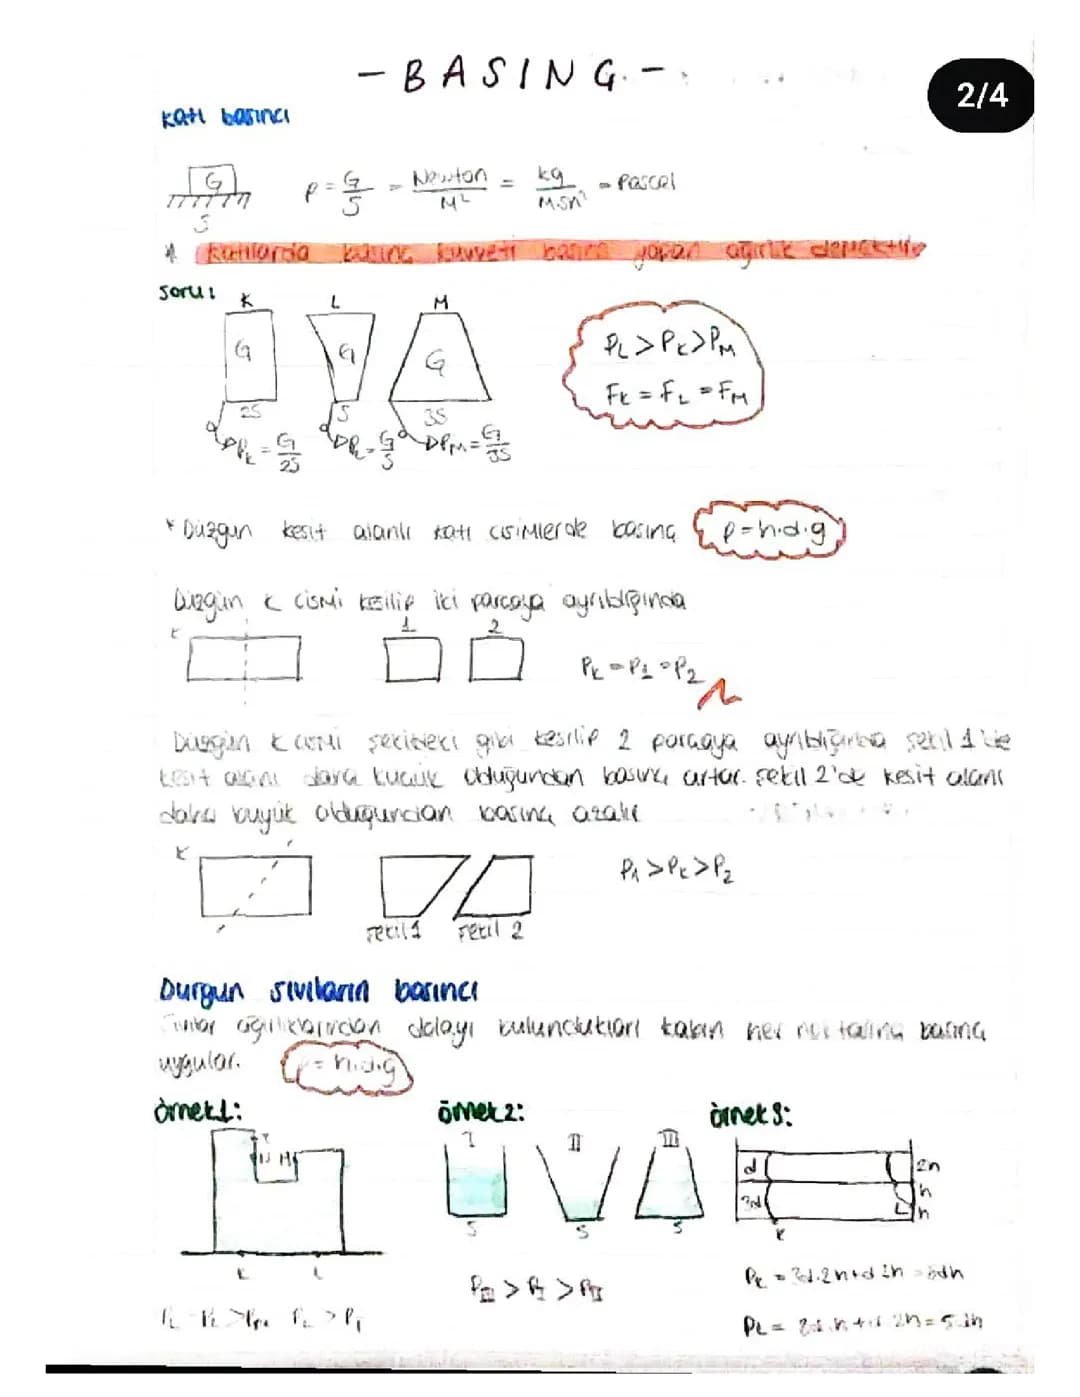 - BASINÇ -
2/4
Katı basıncı
G
S
P = G/S = Newton/M² = kg/M.sn² = Pascal
* Katılarda basınç kuvveti basınç yapan ağırlık demektir
Soru:
K L M
G G G
2S S 3S
PK = G/2S PL = G/S PM = G/3S
PL > PK > PM
FK = FL = FM
* Düzgün kesit alanlı katı cisimlerde basınç P=h.d.g
Düzgün K cismi kesilip iki parçaya ayrıldığında
K 1 2
PK = P1 = P2
Düzgün K cismi şekildeki gibi kesilip 2 parçaya ayrıldığında şekil 1'de
kesit alanı daha küçük olduğundan basınç artar. Şekil 2'de kesit alanı
daha büyük olduğundan basınç azalır
K
şekil 1 şekil 2
P1 > PK > P2
Durgun sıvıların basıncı
Sıvılar ağırlıklarından dolayı bulundukları kabın her noktasına basınç
uygular. P = h.d.g
örnek1: örnek2: örnek3:
I II III
S S S
d 2h
3d h
L h
K
K L
PIII > PI > PII
PK = 3d.2h+d.2h = 8dh
PL = 3d.h+d.2h = 5dh